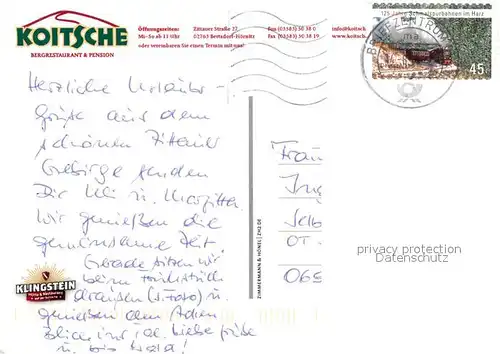 KOITSCHE
BERGRESTAURANT & PENSION
Öffnungszeiten:
Mi-So ab 11 Uhr
oder vereinbaren Sie einen Termin mit uns!
Zittauer Straße 27
02763 Bertsdorf-Hörnitz
Fax (03583) 50 38 0
Fax (03583) 50 38 19
info@koitsch
www.koitsch
125 Jahre Schmalspurbahnen im Harz
BRIEFZENTRUM
45
Herzliche Urlaubs-
grüße aus dem
schönen Zittauer
Gebirge senden
Dir Uli u. Margitta.
Wir genießen die
gemeinsame Zeit.
Gerade sitzen wir
beim Frühstück
draußen (s. Foto) u.
genießen den
Blick ins Tal. Liebe Grüße
u. bis bald!
KLINGSTEIN
ZIMMERMANN & HÖNEL | ZH2.DE
Frau
Selb
OT
privacy protection
Datenschutz